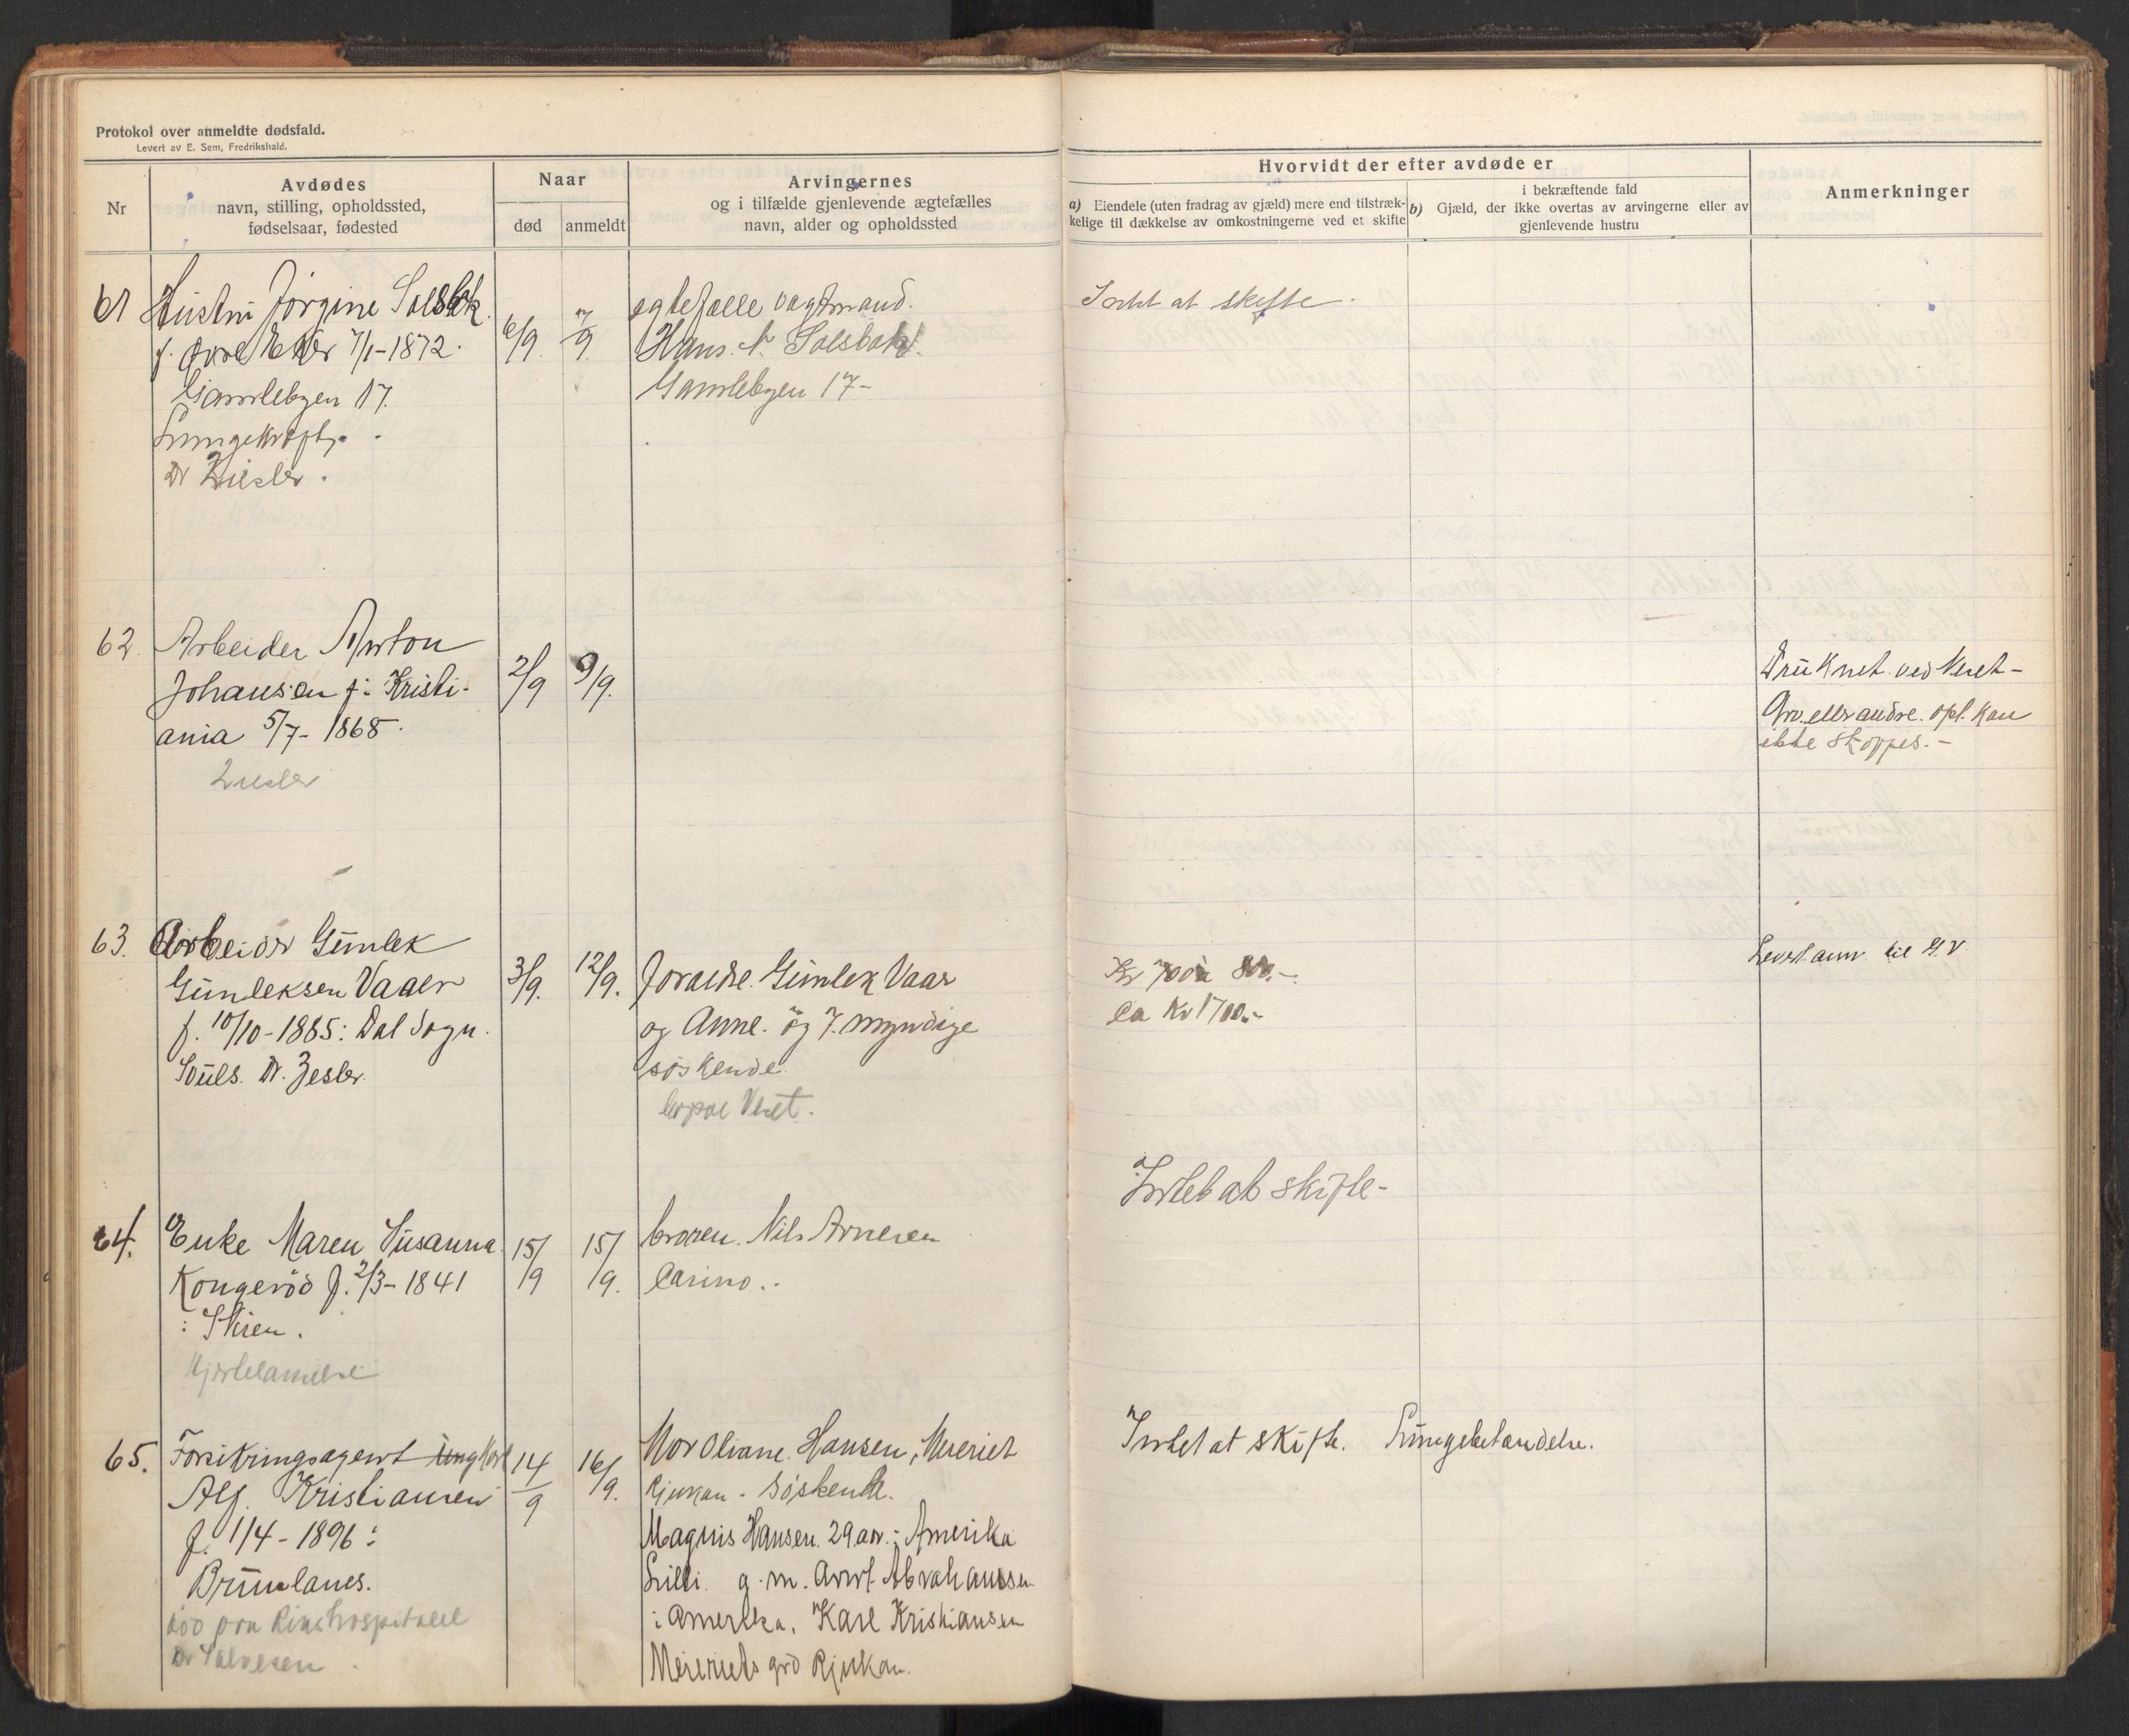 Protokol over anmeldte dødsfald.
Levert av E. Sem, Fredrikshald.
Nr
Avdødes
navn, stilling, opholdssted,
fødselsaar, fødested
Naar
død
anmeldt
Arvingernes
og i tilfælde gjenlevende ægtefælles
navn, alder og opholdssted
Hvorvidt der efter avdøde er
a) Eiendele (uten fradrag av gjæld) mere end tilstræk-
kelige til dækkelse av omkostningerne ved et skifte
i bekræftende fald
b) Gjæld, der ikke overtas av arvingerne eller av
gjenlevende hustru
Anmerkninger
61 Hustru Jørgine Solsbak
f. Øvre Eker 7/1-1872.
Gamlebyen 17.
Dr
6/9.
7/9.
egtefælle vagtmand.
Hans N. Solsbak.
Gamlebyen 17-
Intet at skifte.
62. Arbeider Anton
Johansen f: Kristi-
ania 5/7- 1868.
2/9
9/9.
Druknet ved Veret-
Arv. eller andre. opl. kan
ikke skaffes.-
63. Arbeider Gunlek
Gunleksen Vaaer
f. 10/10-1885: Dal Sogn.
Dr.
3/9.
12/9.
Forældre. Gunlek Vaar
og Anne. og 7. myndige
søskende.
Kr
Ca Kr 1700.-
64. Enke Maren Susanna
Kongerød f. 2/3- 1841
: Skien.
Hjertelammelse
15/9
15/9.
broren. Nils Arnesen
Casino..
Intet at skifte-
65. Forsikringsagent
Alf. Kristiansen
f. 1/4-1896:
Brunlanes.
død paa Rikshospitalet
Dr Salvesen.
14/9
16/9.
Mor Oliane. Hansen, Meieriet
Rjukan. Søskende.
Magnis Hansen. 29 aar.- Amerika
Lilli. g. m. Arnt Abrahamsen
i Amerika. Karl Kristiansen
Meieriets grd Rjukan.
Intet at skifte. Lungebetændelse.